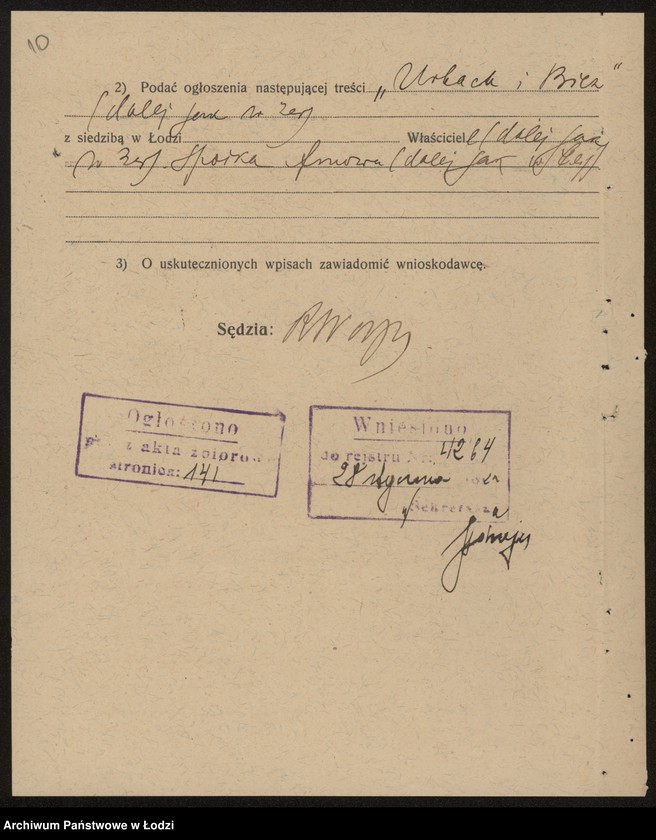 10
2) Podać ogłoszenia następującej treści „Urbach i Biez”
(dalej jak w rej)
z siedzibą w Łodzi Właściciele (dalej jak
w rej) Spółka firmowa (dalej jak w rej)
3) O uskutecznionych wpisach zawiadomić wnioskodawcę.
Sędzia:
Ogłoszono
z akta zbiorowe
stronica: 141
Wniesiono
do rejstru Nr. 4264
28 stycznia
Sekretarz
Archiwum Państwowe w Łodzi